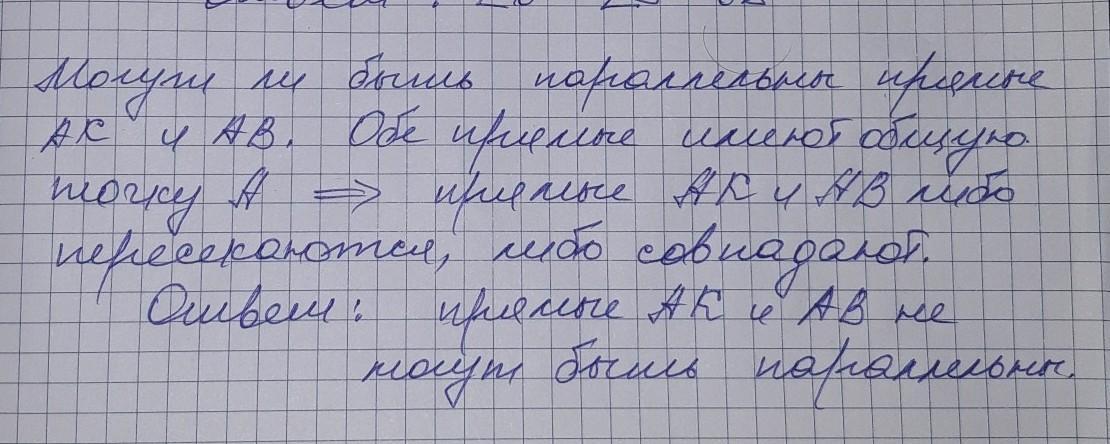 Могут ли быть параллельны прямые
АК и АВ. Обе прямые имеют общую
точку А ⟹ прямые АК и АВ либо
пересекаются, либо совпадают.
Ответ: прямые АК и АВ не
могут быть параллельны.